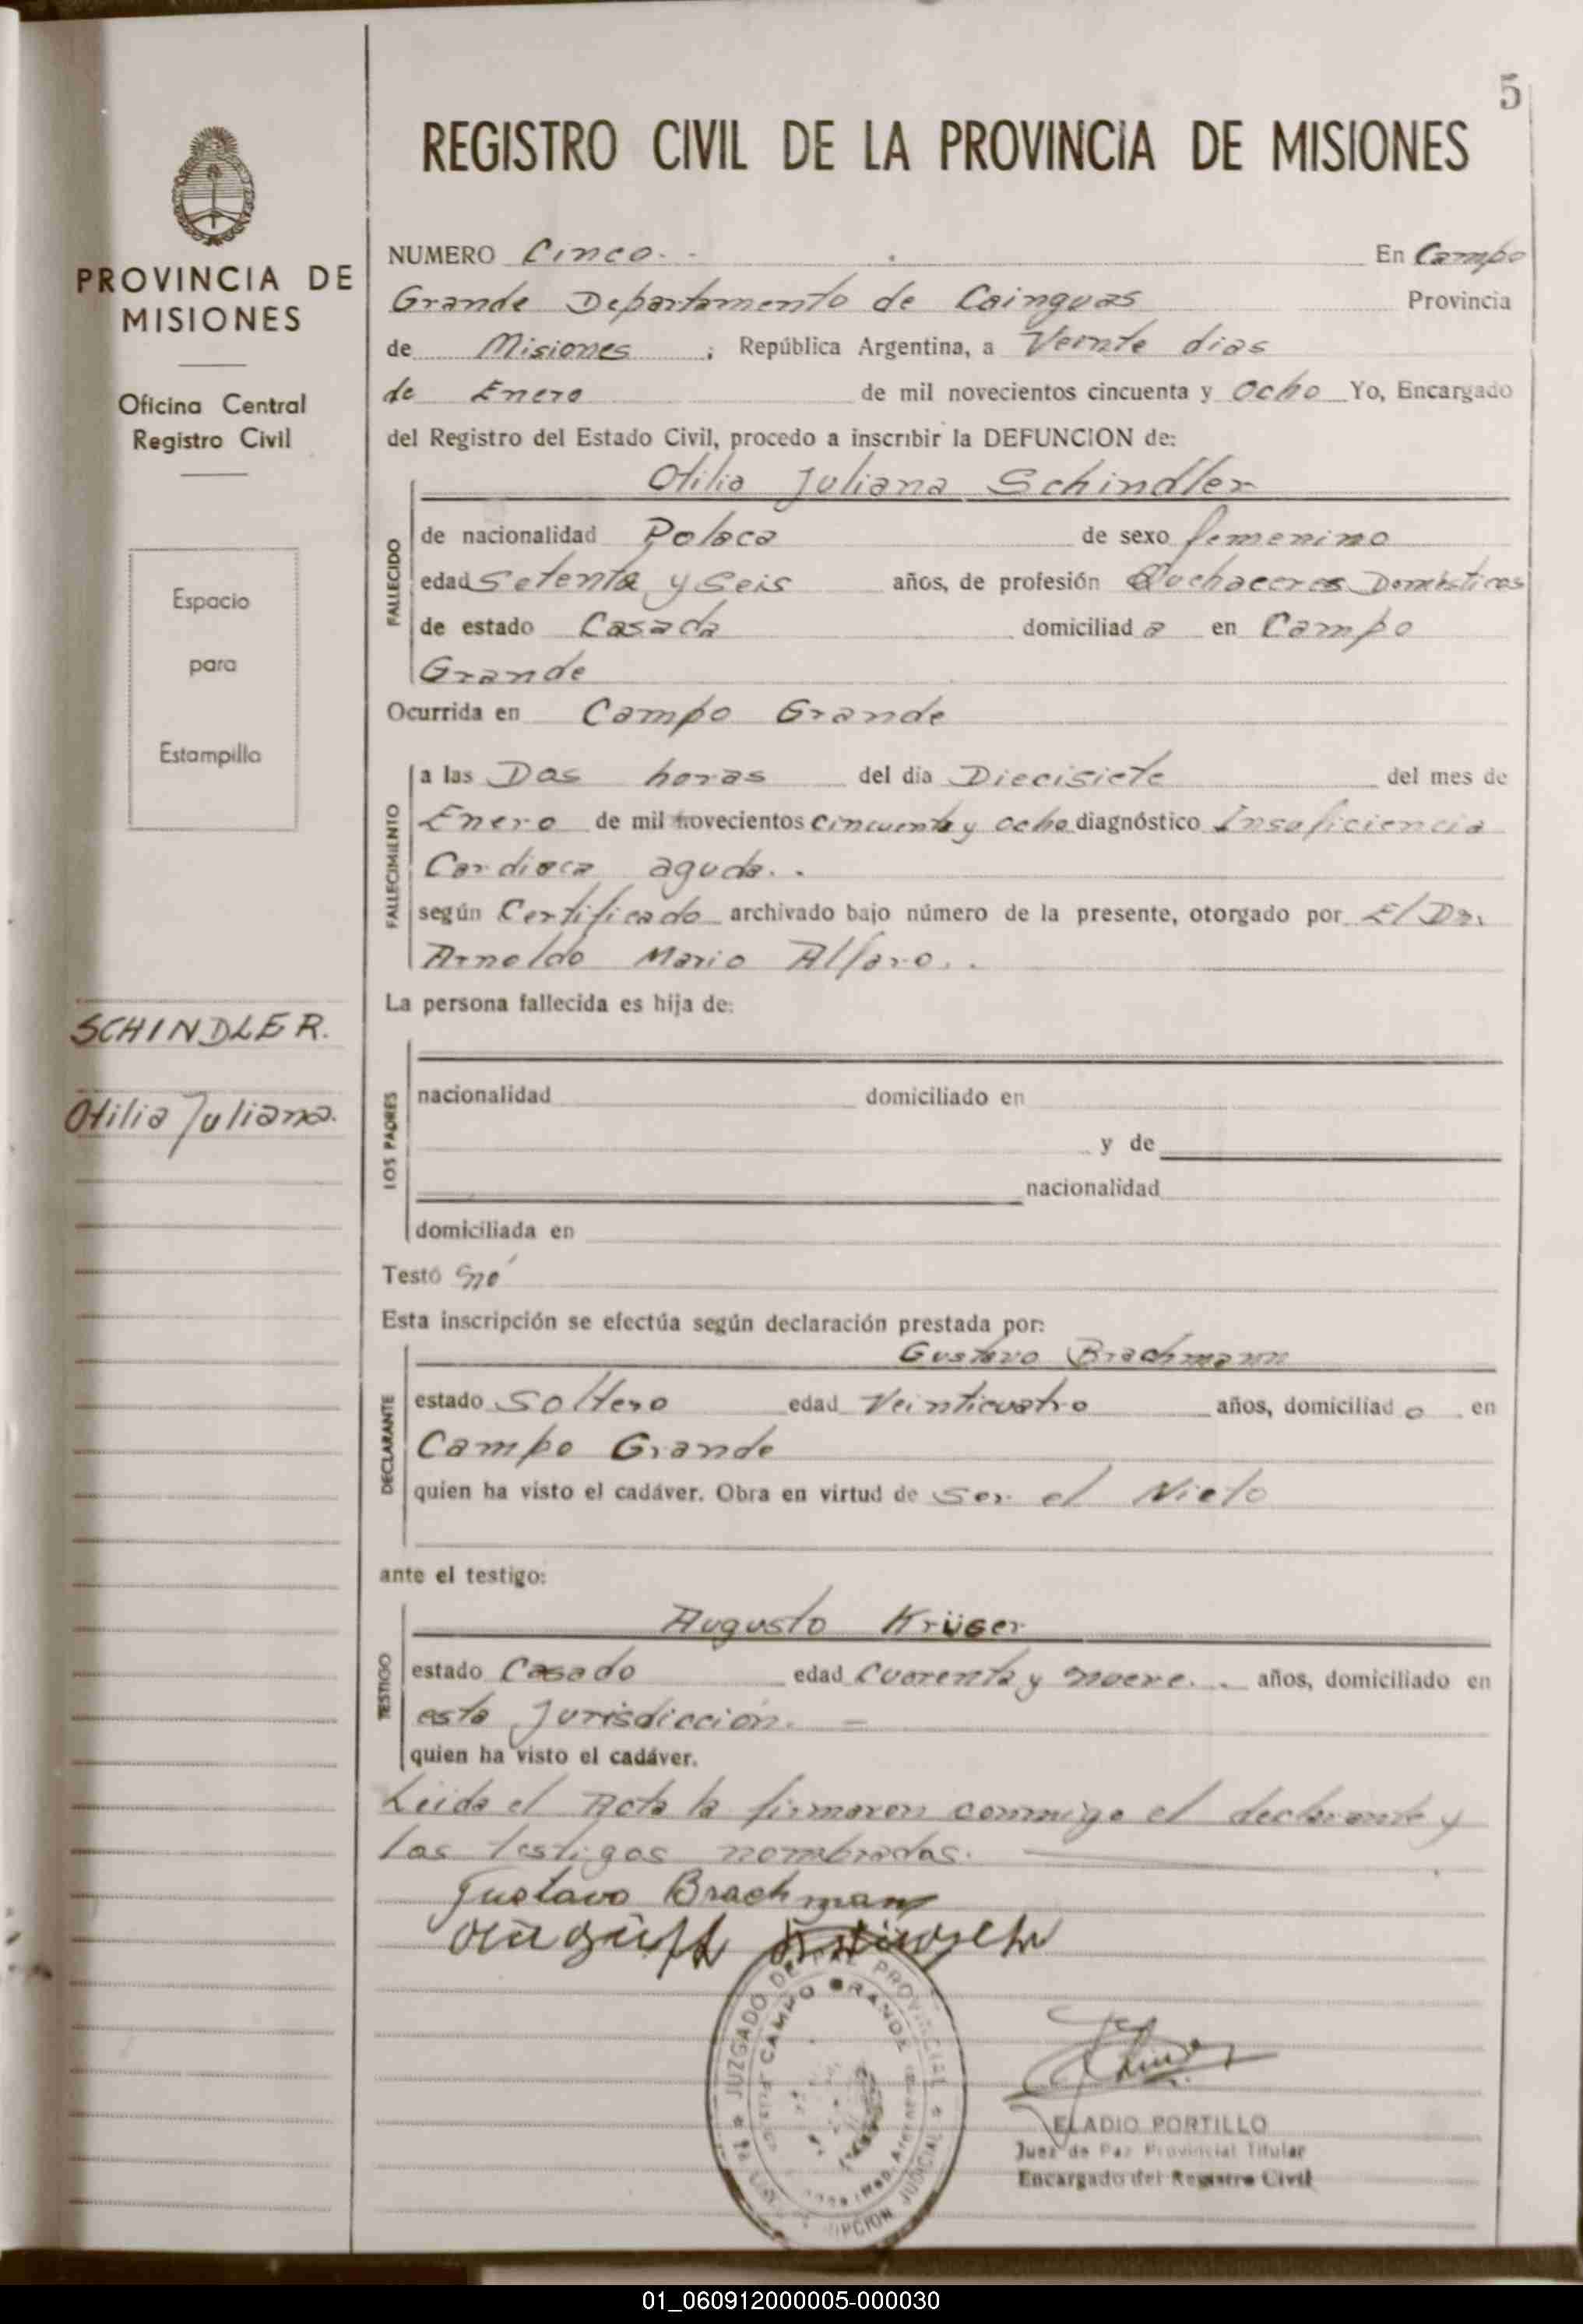 5
REGISTRO CIVIL DE LA PROVINCIA DE MISIONES
PROVINCIA DE
MISIONES
Oficina Central
Registro Civil
Espacio
para
Estampilla
SCHINDLER.
Otilia Juliana.
NUMERO Cinco. En Campo
Grande Departamento de Cainguas Provincia
de Misiones ; República Argentina, a Veinte dias
de Enero de mil novecientos cincuenta y ocho Yo, Encargado
del Registro del Estado Civil, procedo a inscribir la DEFUNCION de:
Otilia Juliana Schindler
FALLECIDO
de nacionalidad Polaca de sexo femenino
edad Setenta y Seis años, de profesión Quehaceres Domésticos
de estado Casada domiciliad a en Campo
Grande
Ocurrida en Campo Grande
FALLECIMIENTO
a las Dos horas del dia Diecisiete del mes de
Enero de mil novecientos cincuenta y ocho diagnóstico Insuficiencia
Cardiaca aguda. .
según Certificado archivado bajo número de la presente, otorgado por El Dr.
Arnoldo Mario Alfaro. .
La persona fallecida es hija de:
LOS PADRES
nacionalidad domiciliado en
y de
nacionalidad
domiciliada en
Testó no
Esta inscripción se efectúa según declaración prestada por:
Gustavo Brachmann
DECLARANTE
estado Soltero edad Veinticuatro años, domiciliad o en
Campo Grande
quien ha visto el cadáver. Obra en virtud de ser el Nieto
ante el testigo:
Augusto Krüger
TESTIGO
estado Casado edad Cuarenta y nueve. . años, domiciliado en
esta Jurisdicción. —
quien ha visto el cadáver.
Leida el Acta la firmaron conmigo el declarante y
los testigos nombrados.
Gustavo Brachmann
JUZGADO DE PAZ PROVINCIAL
CAMPO GRANDE
JUDICIAL
ELADIO PORTILLO
Juez de Paz Provincial Titular
Encargado del Registro Civil
01_060912000005-000030